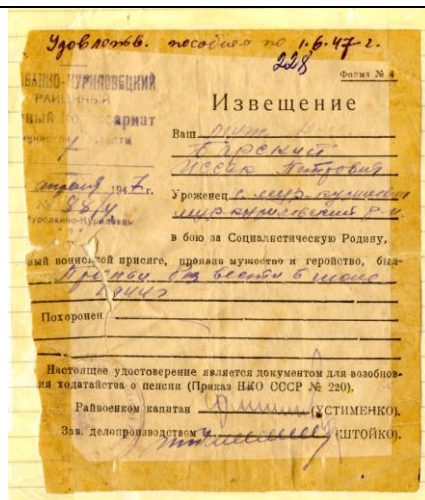 Удовлетв. пособием по 1.6.47 г.
228
Форма № 4
КУРИЛОВЕЦКИЙ
РАЙОННЫЙ
Извещение
Ваш муж
Барский
Иссак Петрович
194 г.
Уроженец с. Мур. Куриловцы
Мур. Куриловский р-н
в бою за Социалистическую Родину,
ный воинской присяге, проявив мужество и геройство, был
Пропал без вести в июле
1944 г
Похоронен
Настоящее удостоверение является документом для возобнов-
ия ходатайства о пенсии (Приказ НКО СССР № 220).
Райвоенком капитан (УСТИМЕНКО).
Зав. делопроизводством (ШТОЙКО).